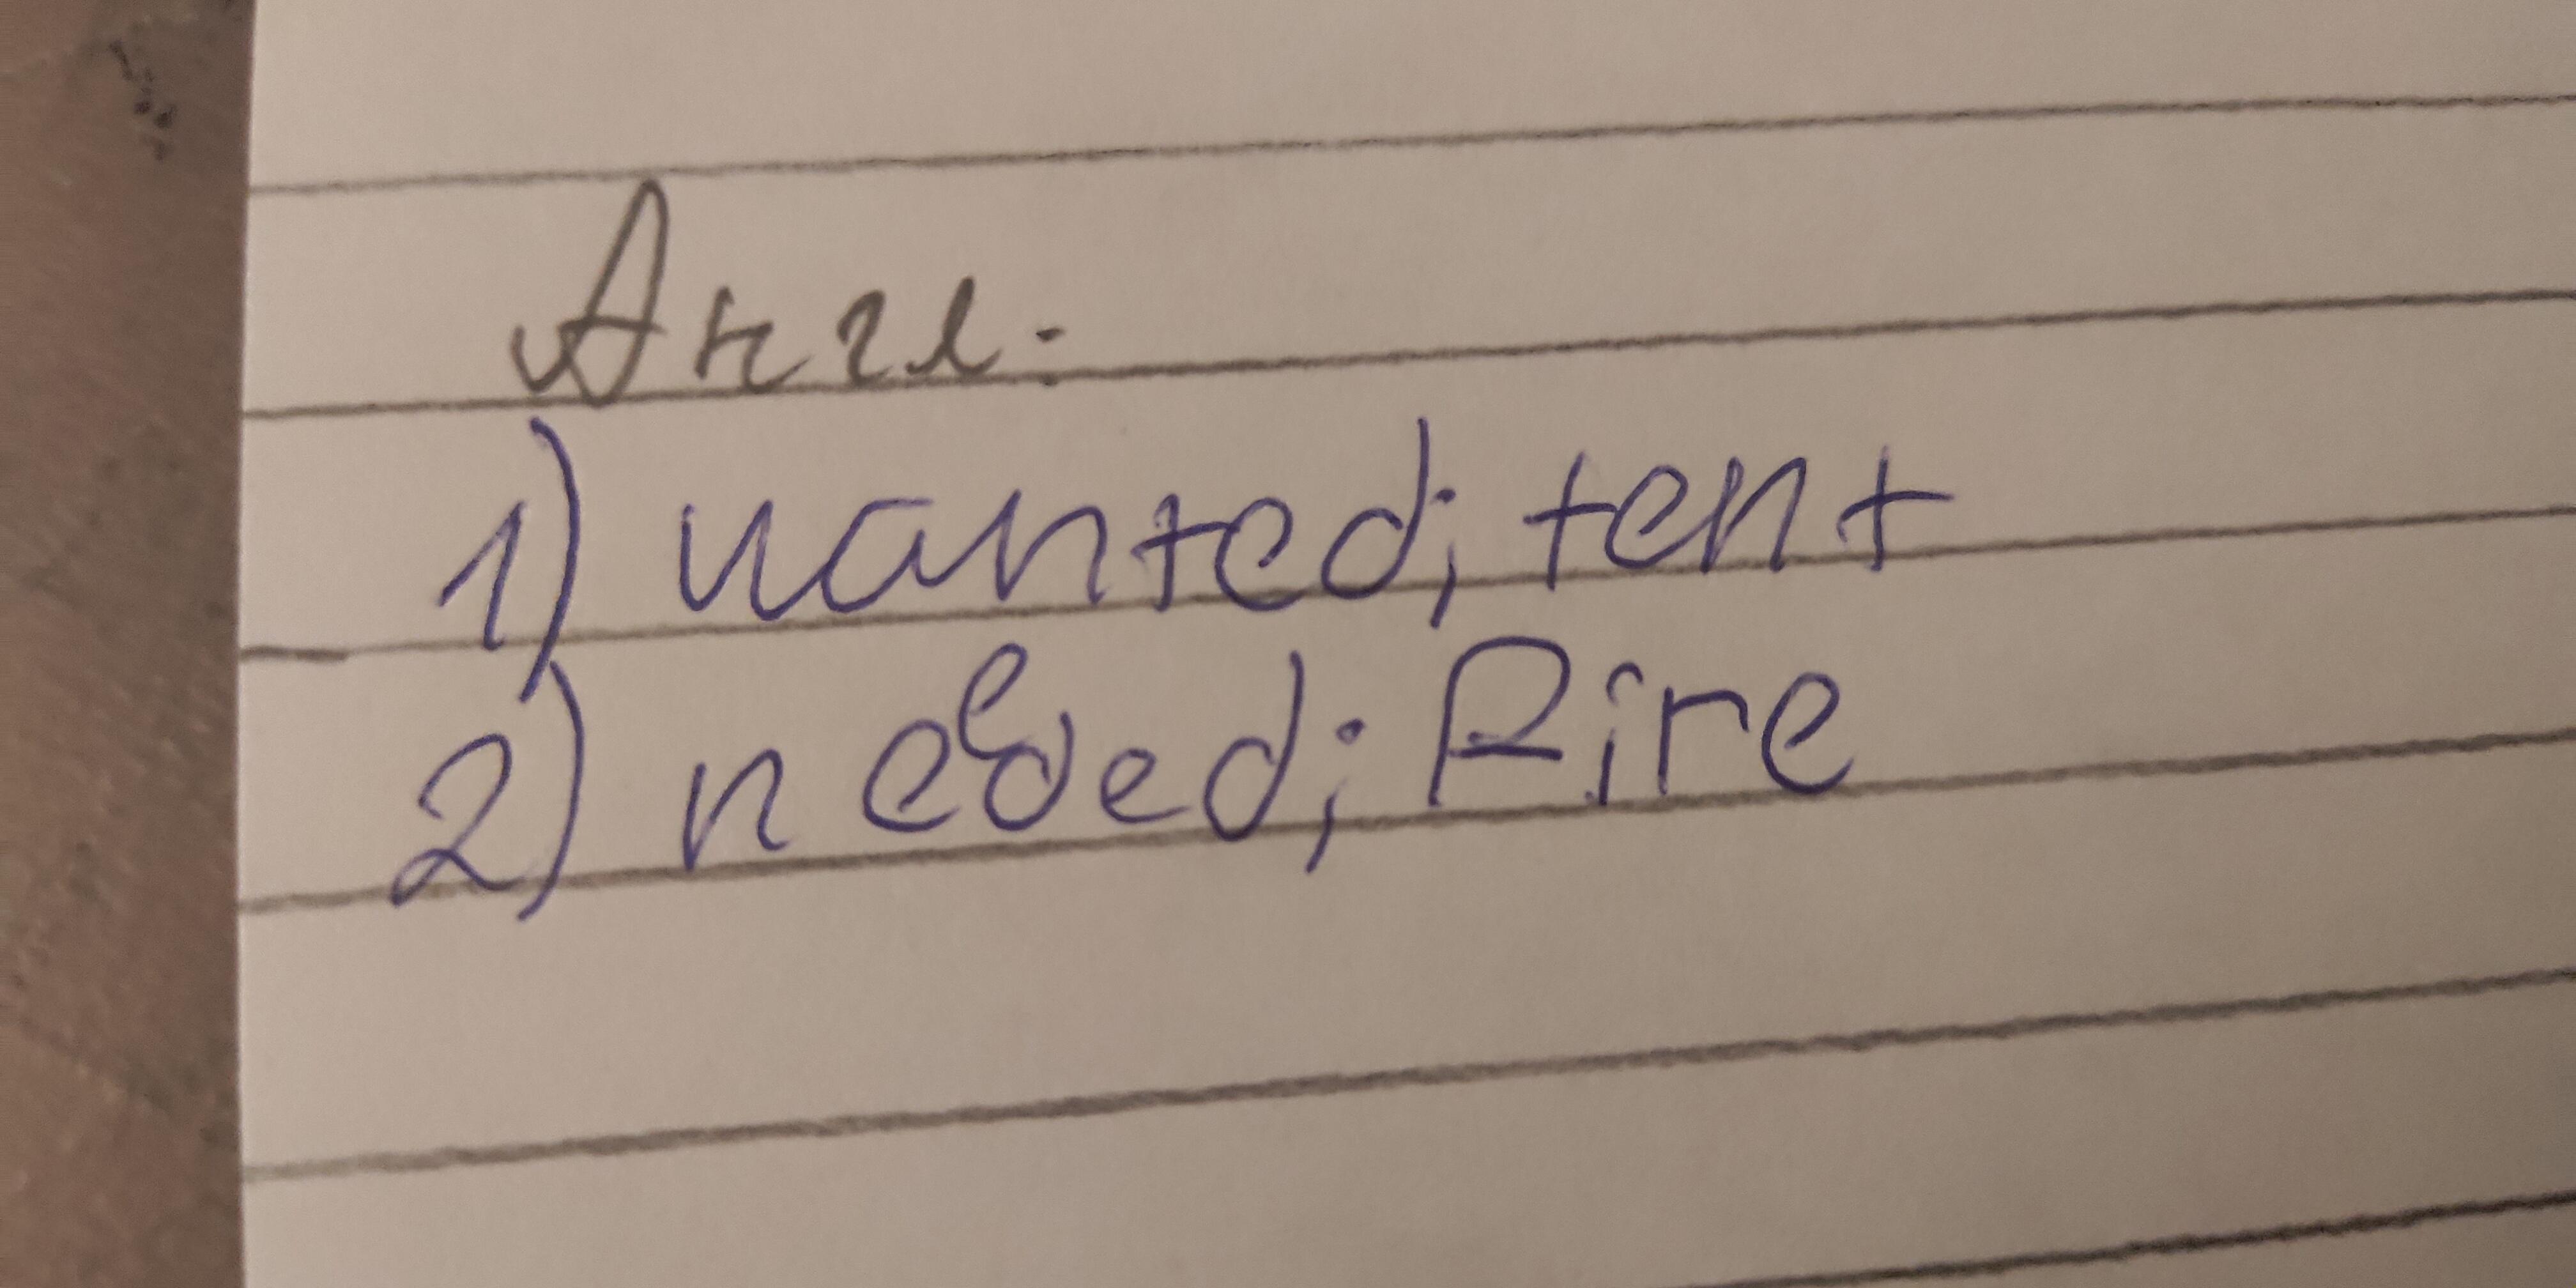 Англ.
1) wanted; tent
2) needed; fire